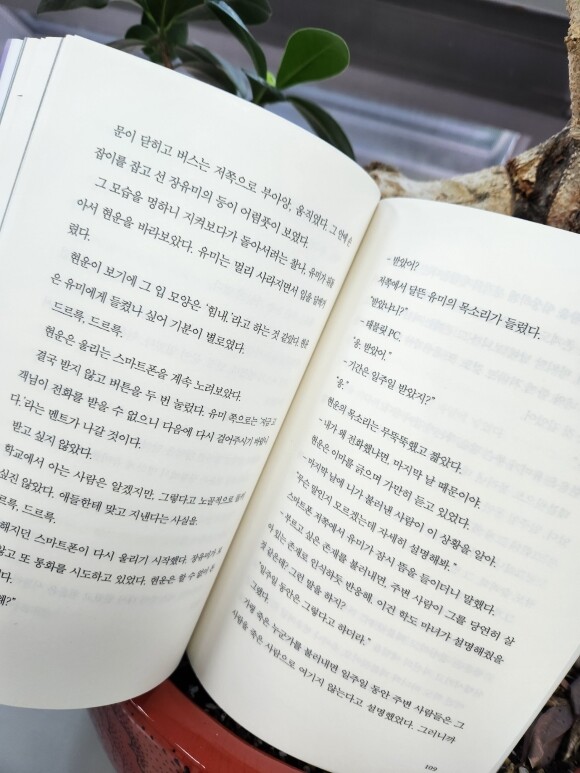 문이 닫히고 버스는 저쪽으로 부아앙, 움직였다. 그 안에 손
잡이를 잡고 선 장유미의 등이 어렴풋이 보였다.
그 모습을 멍하니 지켜보다가 돌아서려는 찰나, 유미가
아서 현운을 바라보았다. 유미는 멀리 사라지면서 입을
렸다.
현운이 보기에 그 입 모양은 '힘내.'라고 하는 것 같았다.
은 유미에게 들켰나 싶어 기분이 별로였다.
드르륵, 드르륵.
현운은 울리는 스마트폰을 계속 노려보았다.
결국 받지 않고 버튼을 두 번 눌렀다. 유미 쪽으로는 '지금 고
객님이 전화를 받을 수 없으니 다음에 다시 걸어주시기 바랍니
다.'라는 멘트가 나갈 것이다.
받고 싶지 않았다.
학교에서 아는 사람은 알겠지만, 그렇다고 노골적으로
싶진 않았다. 애들한테 맞고 지낸다는 사실을.
르륵, 드르륵.
해지던 스마트폰이 다시 울리기 시작했다. 장유미가
않고 또 통화를 시도하고 있었다. 현운은 할 수 없이
다.
해?"
- 받았어?
저쪽에서 달뜬 유미의 목소리가 들렸다.
"받았냐니?"
- 태블릿 PC.
"응. 받았어."
- 기간은 일주일 받았지?"
"응."
현운의 목소리는 무뚝뚝했고 짧았다.
- 내가 왜 전화했냐면, 마지막 날 때문이야.
현운은 이마를 긁으며 가만히 듣고 있었다.
- 마지막 날에 니가 불러낸 사람이 이 상황을 알아.
"무슨 말인지 모르겠는데 자세히 설명해봐."
스마트폰 저쪽에서 유미가 잠시 뜸을 들이더니 말했다.
- 부르고 싶은 존재를 불러내면, 주변 사람이 그를 당연히 살
아 있는 존재로 인식하도 반응해. 이건 학도 마녀가 설명해줬을
것 같은데? 그런 말을 하지?
"일주일 동안은 그렇다고 하더라."
그랬다.
가령 죽은 누군가를 불러내면 일주일 동안 주변 사람들은 그
사람을 죽은 사람으로 여기지 않는다고 설명했었다. 그러니까
109